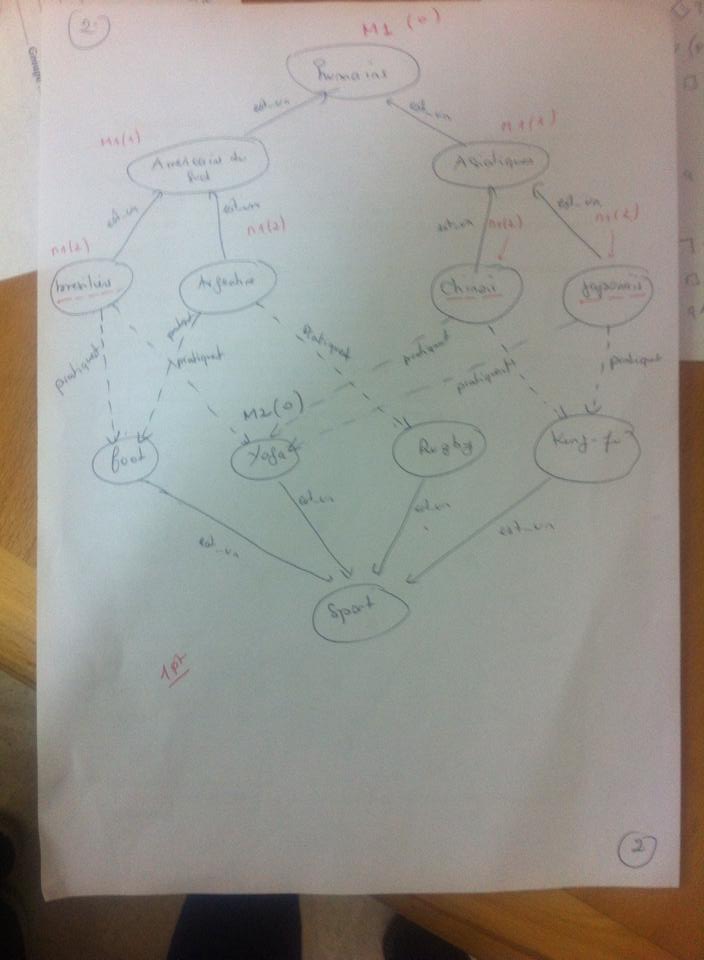 2
M1 (0)
Humains
est_un
est_un
M1(1)
M1(1)
Américain du
Sud
Asiatiques
est_un
est_un
est_un
est_un
M1(2)
M1(2)
M1(2)
M1(2)
bresilins
Argentins
Chinois
Japonais
pratiquet
pratiquet
pratiquet
pratiquet
pratiquent
pratiquet
M2(0)
foot
Yoga
Rugby
Kung-fu
est_un
est_un
est_un
est_un
Sport
1pt
2